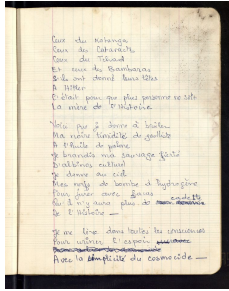 Ceux du Katanga
Ceux du Cataracte
Ceux du Tchad
Et ceux du Bambaras
S'ils ont donné leurs têtes
A Hitler
C'était pour que plus personne ne soit
La mère de l'Histoire
Voici que je donne à brûler
Ma noire timidité de
A l'huile de palme
Je brandis ma sauvage
D'albinos culturel
Je donne au ciel
Mes nerfs de bombe à hydrogène
Pour jurer avec
Qu'il n'y aura plus de cadets
De l'Histoire —
Je me lève dans toutes les consciences
Pour uriner l'espoir
Avec la simplicité du cosmocide —